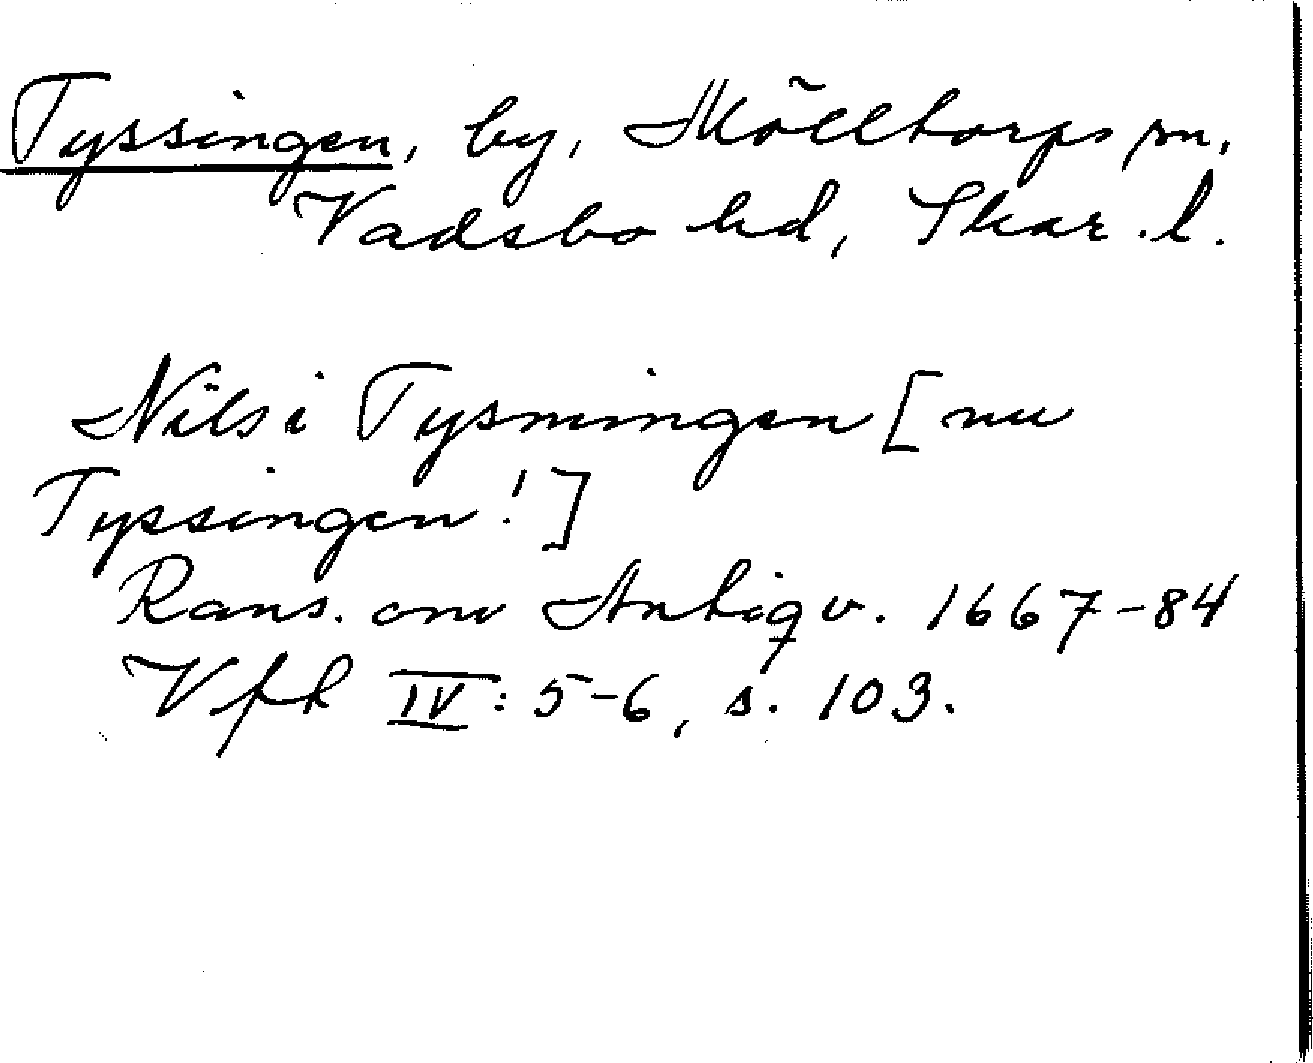 Tyssingen, by, Mölltorps sn,
Vadsbo hd, Skar. l.
Nils i Tysningen [nu
Tyssingen!]
Rans. om Antiqv. 1667-84
Vfk IV: 5-6, s. 103.